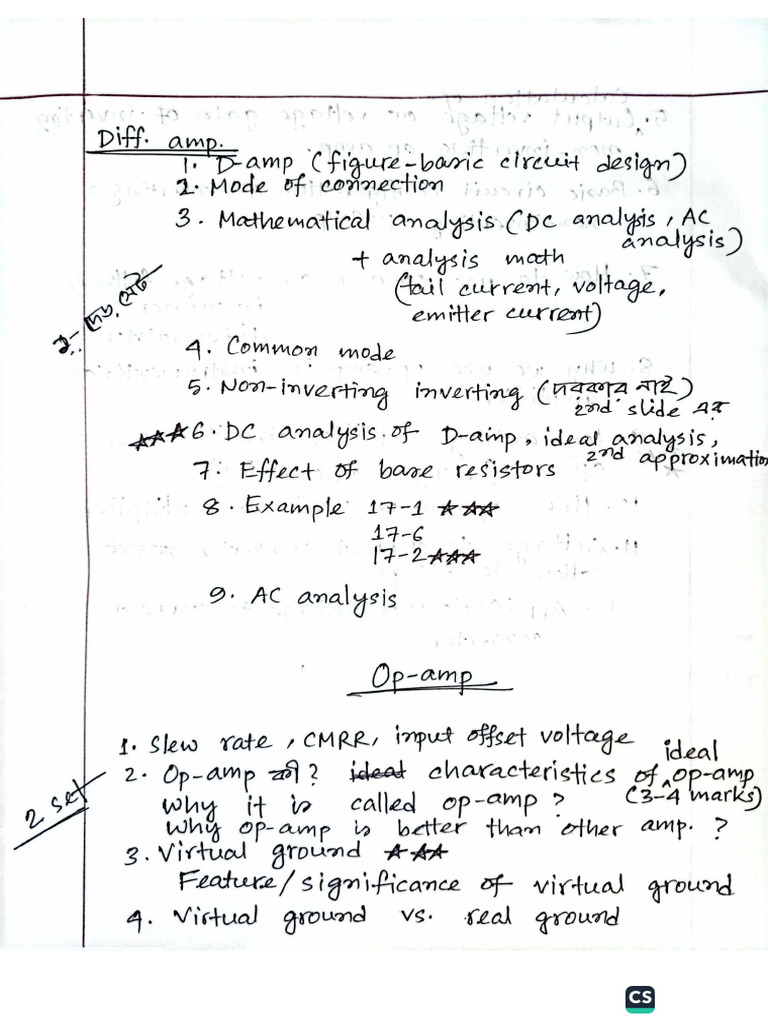 Diff. amp.
1. D-amp (figure-basic circuit design)
2. Mode of connection
3. Mathematical analysis (DC analysis, AC
analysis)
+ analysis math
(tail current, voltage,
emitter current)
সেট
4. Common mode
5. Non-inverting inverting (দরকার নাই)
2nd slide এর
★★★6. DC analysis of D-amp, ideal analysis,
2nd approximation
7. Effect of base resistors
8. Example 17-1 ★★★
17-6
17-2★★★
9. AC analysis
Op-amp
1. Slew rate, CMRR, input offset voltage
ideal
2. Op-amp কী? ideal characteristics of op-amp
why it is called op-amp? (3-4 marks)
2 set
why op-amp is better than other amp.?
3. Virtual ground ★★★
Feature/significance of virtual ground
4. Virtual ground vs. real ground
CS